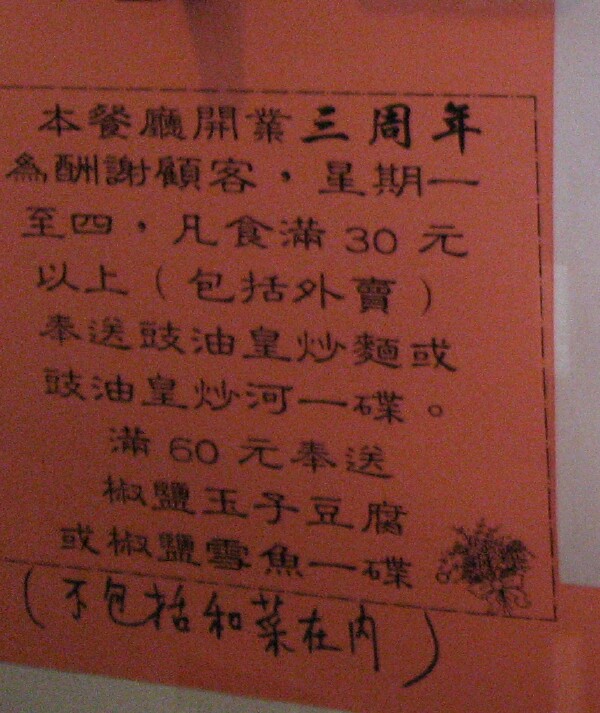 本餐廳開業三周年
為酬謝顧客，星期一
至四，凡食滿 30 元
以上（包括外賣）
奉送豉油皇炒麵或
豉油皇炒河一碟。
滿 60 元奉送
椒鹽玉子豆腐
或椒鹽雪魚一碟。
（不包括和菜在內）